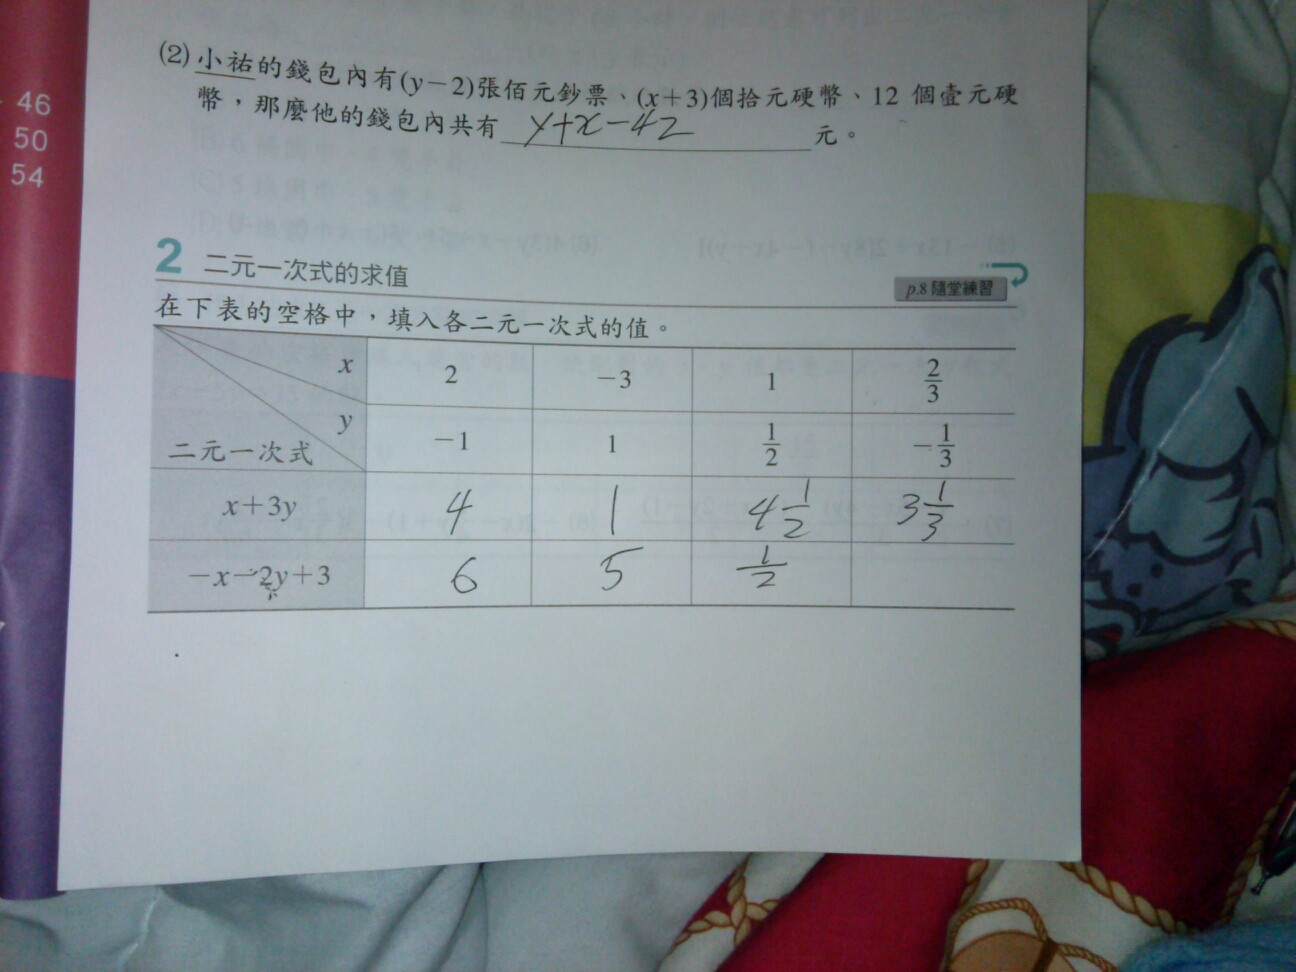 46
50
54
(2) 小祐的錢包內有(y−2)張佰元鈔票、(x+3)個拾元硬幣、12 個壹元硬
幣，那麼他的錢包內共有 y+x−42 元。
2 二元一次式的求值
p.8 隨堂練習
在下表的空格中，填入各二元一次式的值。
x 2 −3 1 2/3
y −1 1 1/2 −1/3
二元一次式
x+3y 4 1 4 1/2 3 1/3
−x−2y+3 6 5 1/2